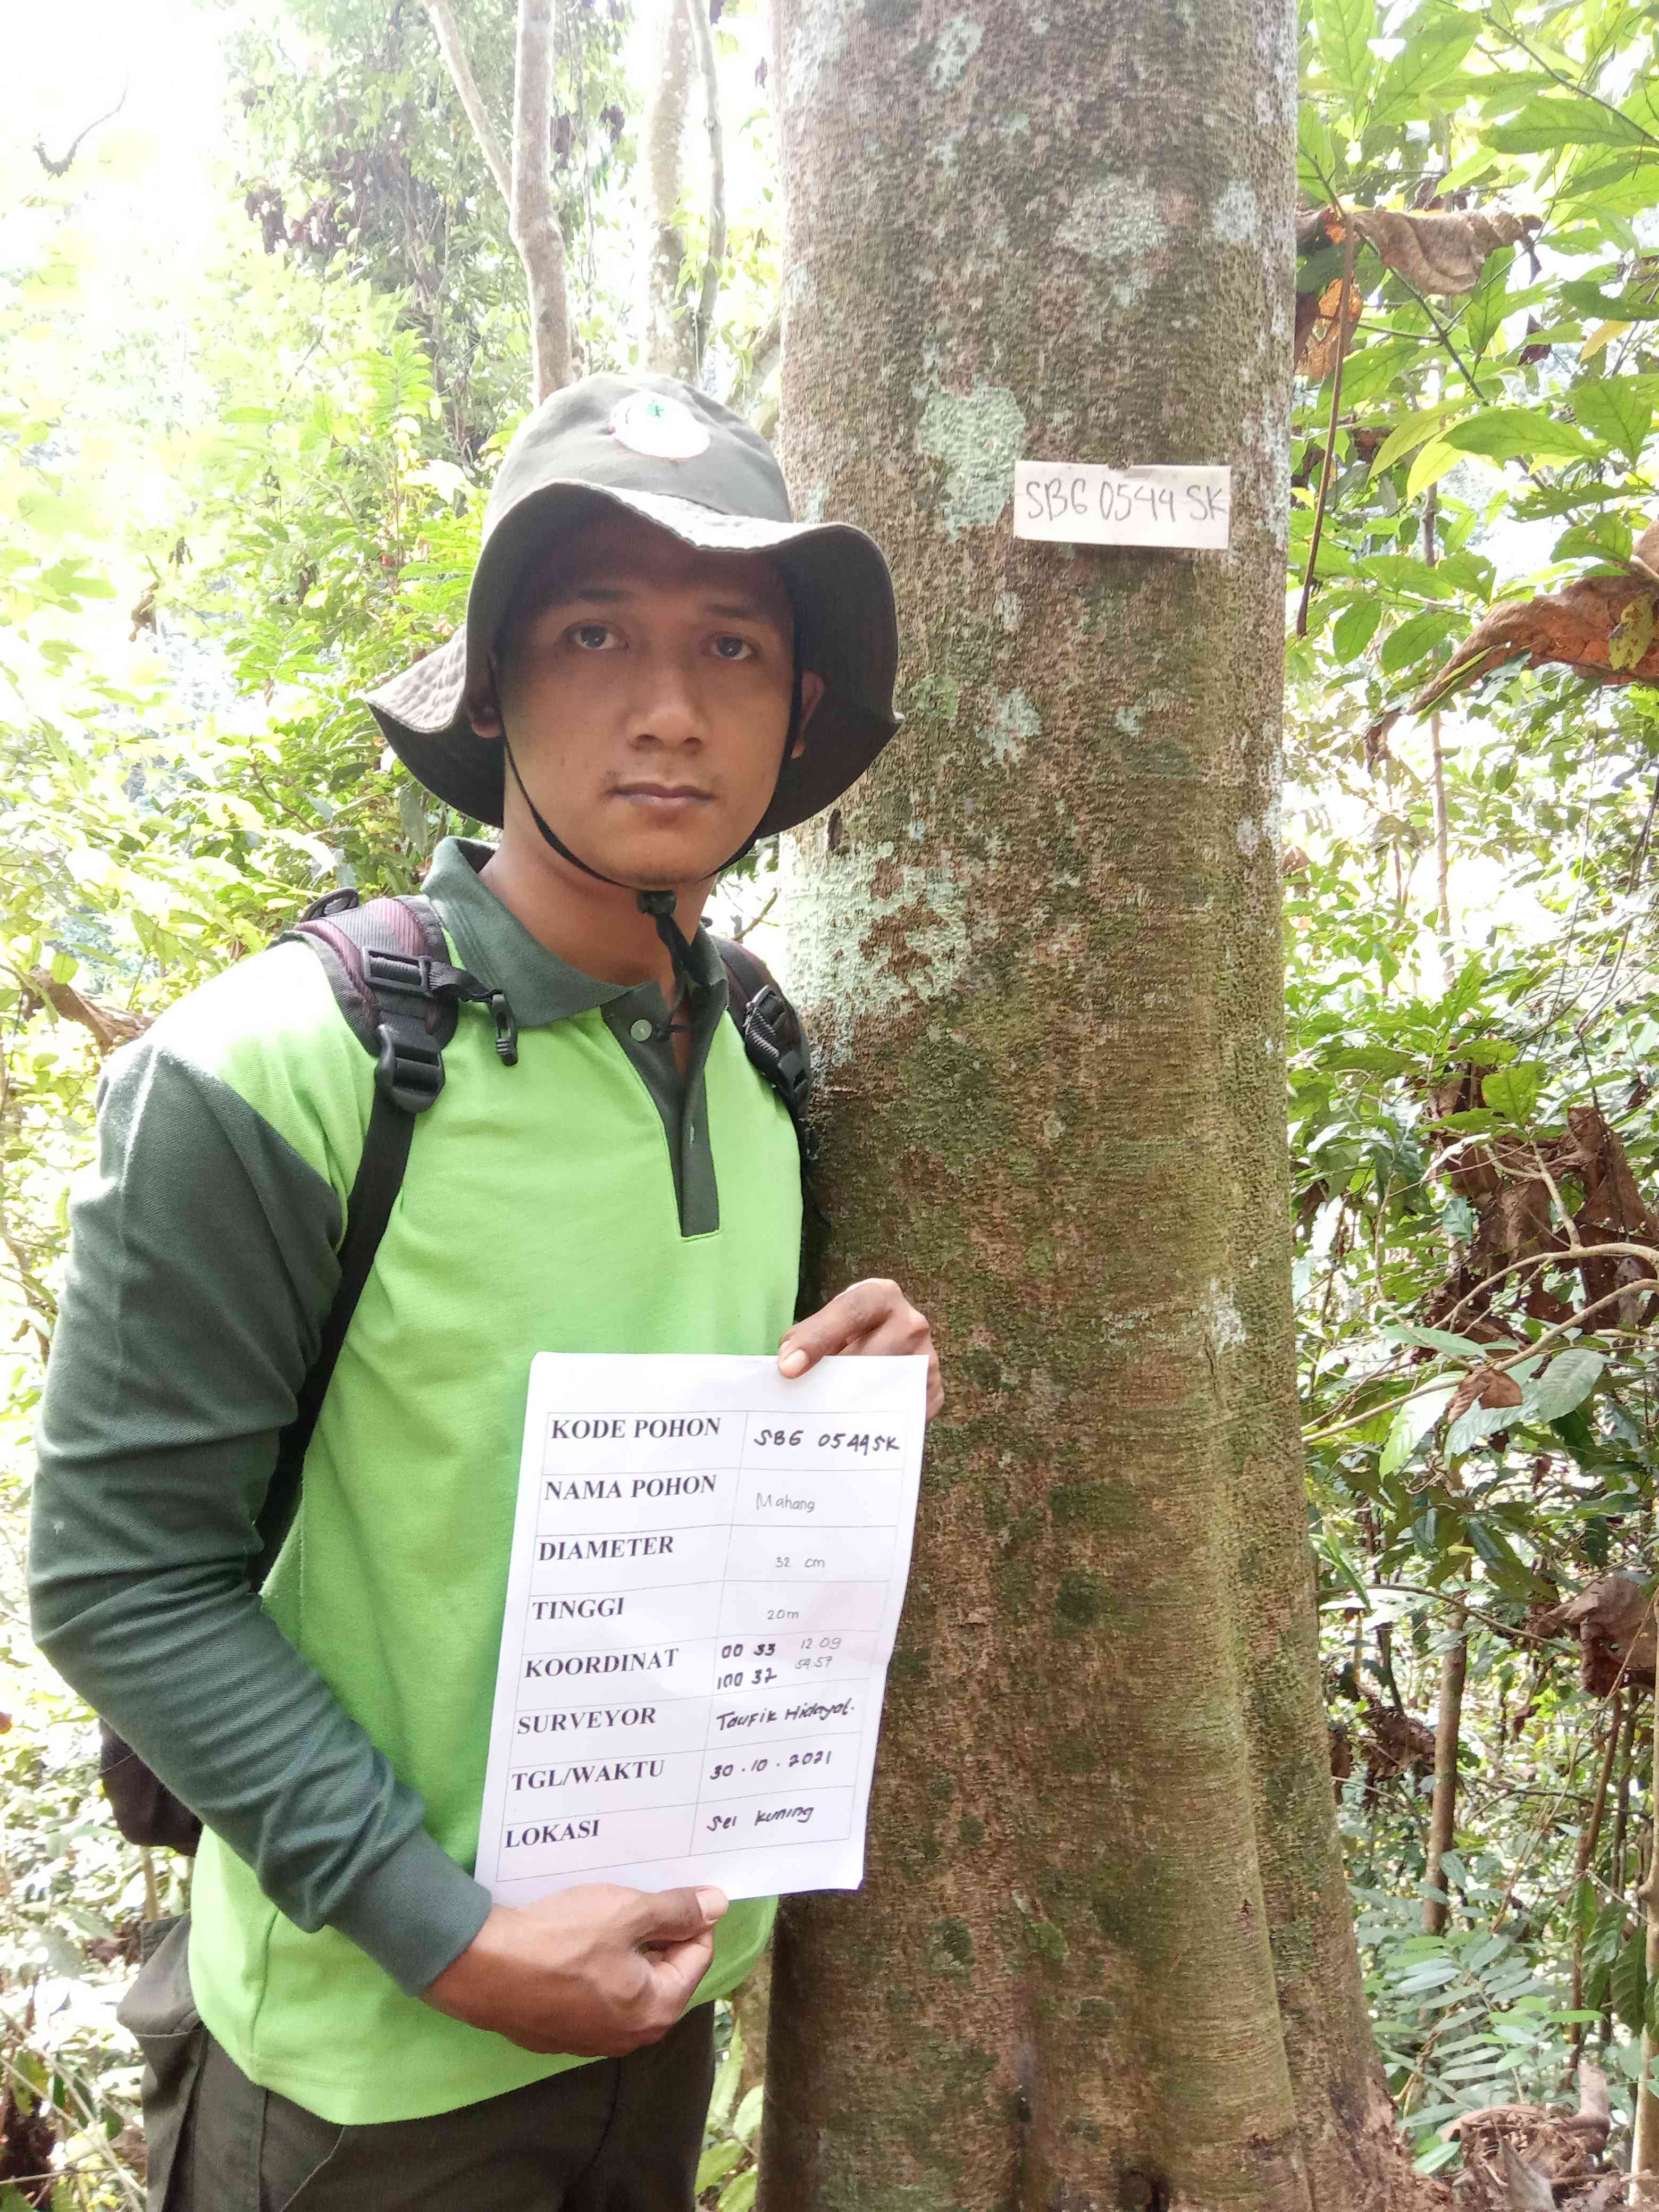 SBG 0544 SK
KODE POHON SBG 0544SK
NAMA POHON Mahang
DIAMETER 32 cm
TINGGI 20m
KOORDINAT 00 33 12 09
100 37 54.57
SURVEYOR Taufik Hidayat.
TGL/WAKTU 30.10.2021
LOKASI Sei kuning